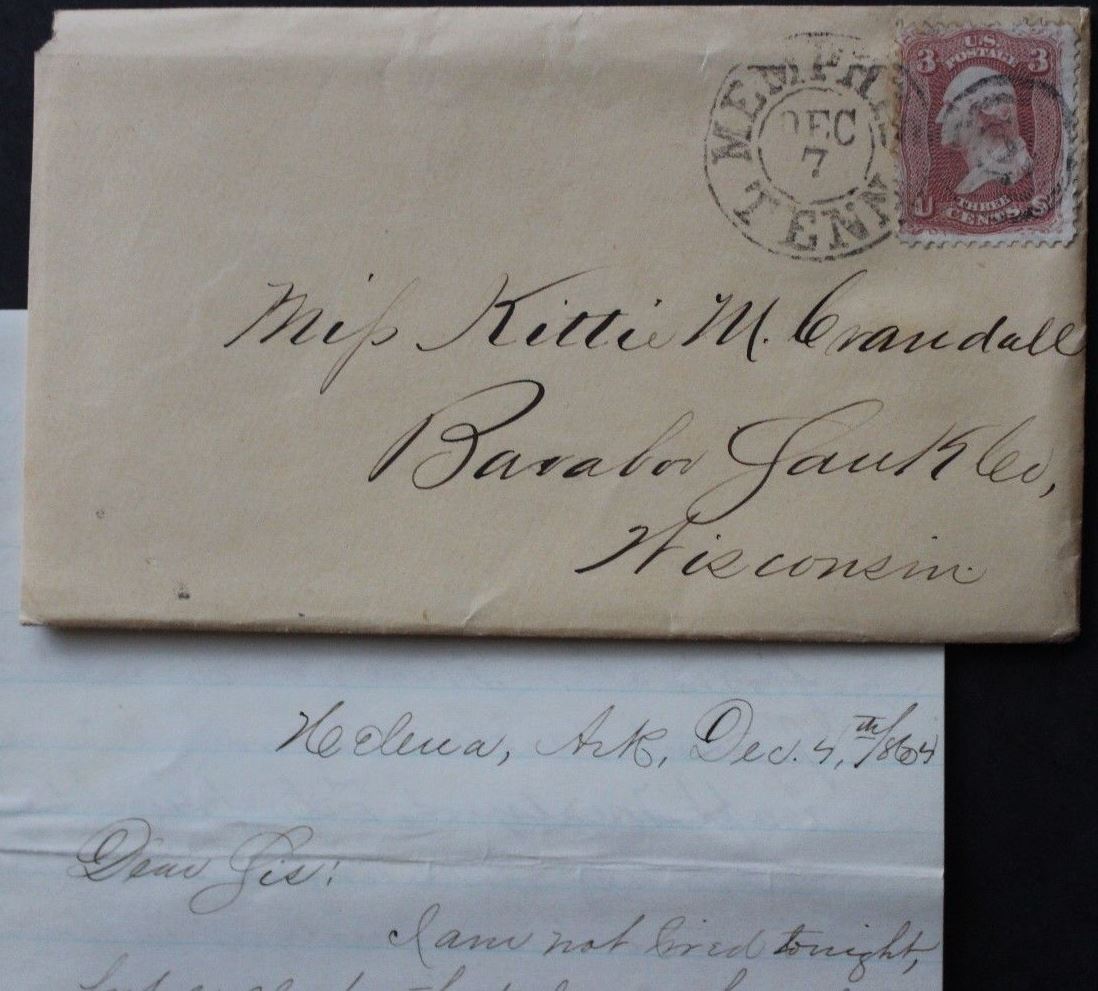 MEMPHIS
DEC
7
TENN
3 U.S. POSTAGE 3
U THREE CENTS S
Miss Kittie M. Crandall
Baraboo Sauk Co,
Wisconsin.
Helena, Ark, Dec. 4,th/864
Dear Sis:
I am not tired tonight,